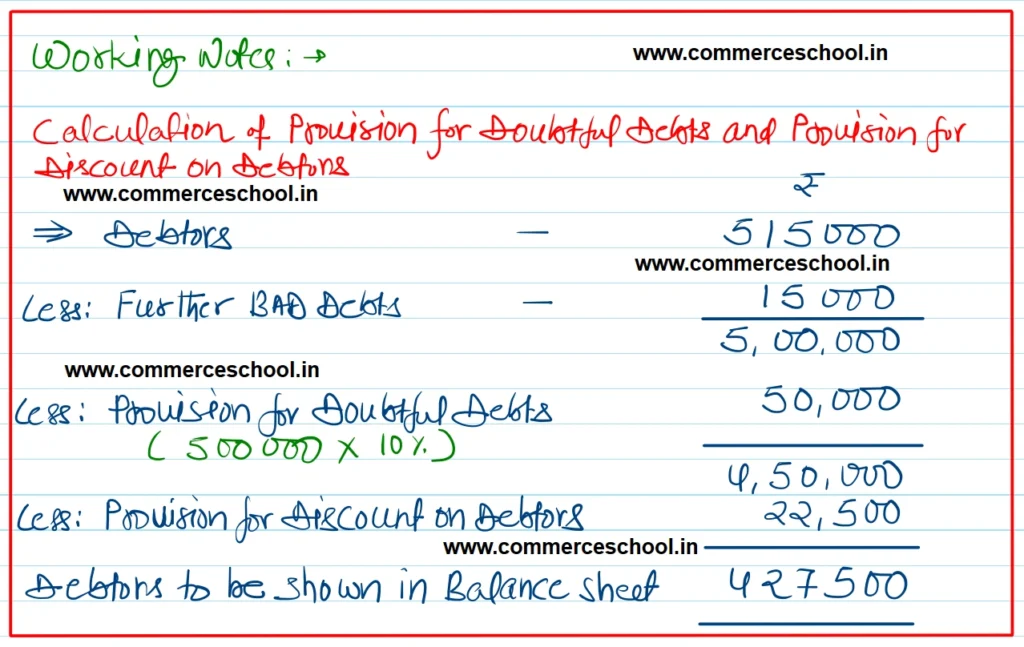 Working Notes : →
www.commerceschool.in
Calculation of Provision for Doubtful Debts and Provision for
Discount on Debtors
www.commerceschool.in
₹
⇒ Debtors — 515000
www.commerceschool.in
Less: Further BAD Debts — 15000
5,00,000
www.commerceschool.in
Less: Provision for Doubtful Debts 50,000
( 500000 × 10%.)
4,50,000
Less: Provision for Discount on Debtors 22,500
www.commerceschool.in
Debtors to be shown in Balance sheet 427500